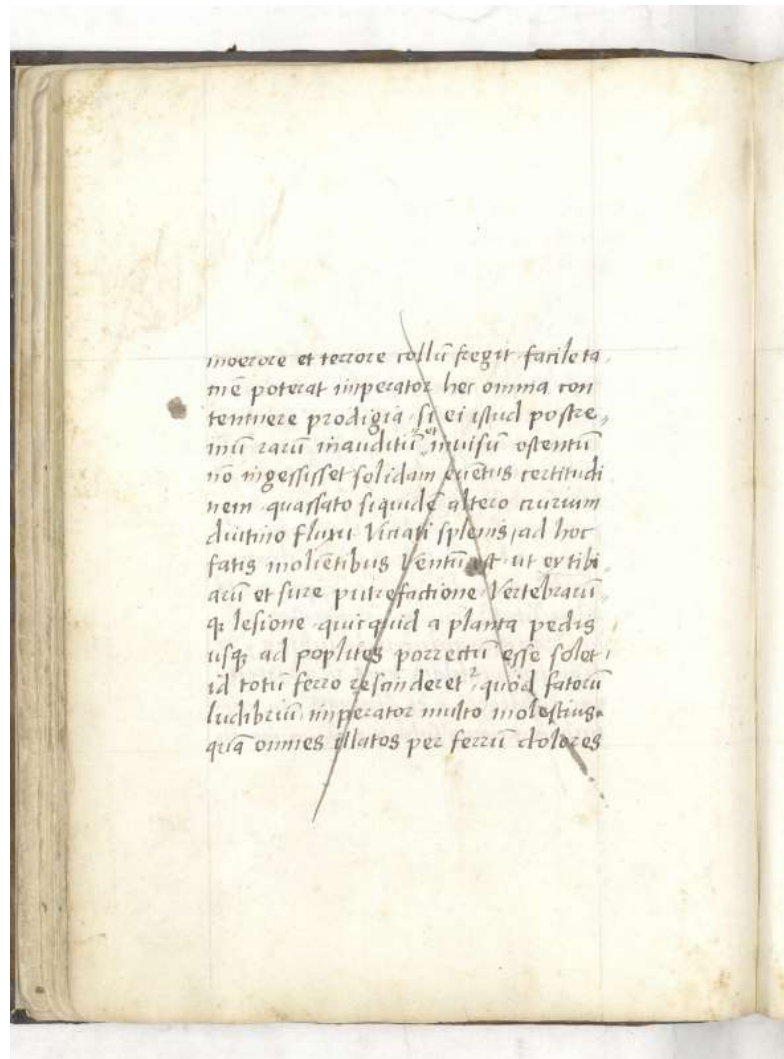 moerore et terrore collũ fregit facile ta,
mẽ poterat imperator hec omnia con
temnere prodigia si ei istud postre„
mũ rarũ inauditũ et invisũ ostentũ
nõ ingessisset solidam euẽtus certitudi
nem quassato siquidẽ altero crurium
diutino fluxu Viciati splenis, ad hoc
fatis moliẽtibus Ventũ est ut ex tibi„
arũ et sure putrefactione Vertebrarũ
qꝫ lesione quicquid a planta pedis
usqꝫ ad poplites porrectũ esse solet,
id totũ ferro rescinderetᷣ quod fatorũ
ludibriũ imperator multo molestius
quã omnes illatos per ferrũ dolores